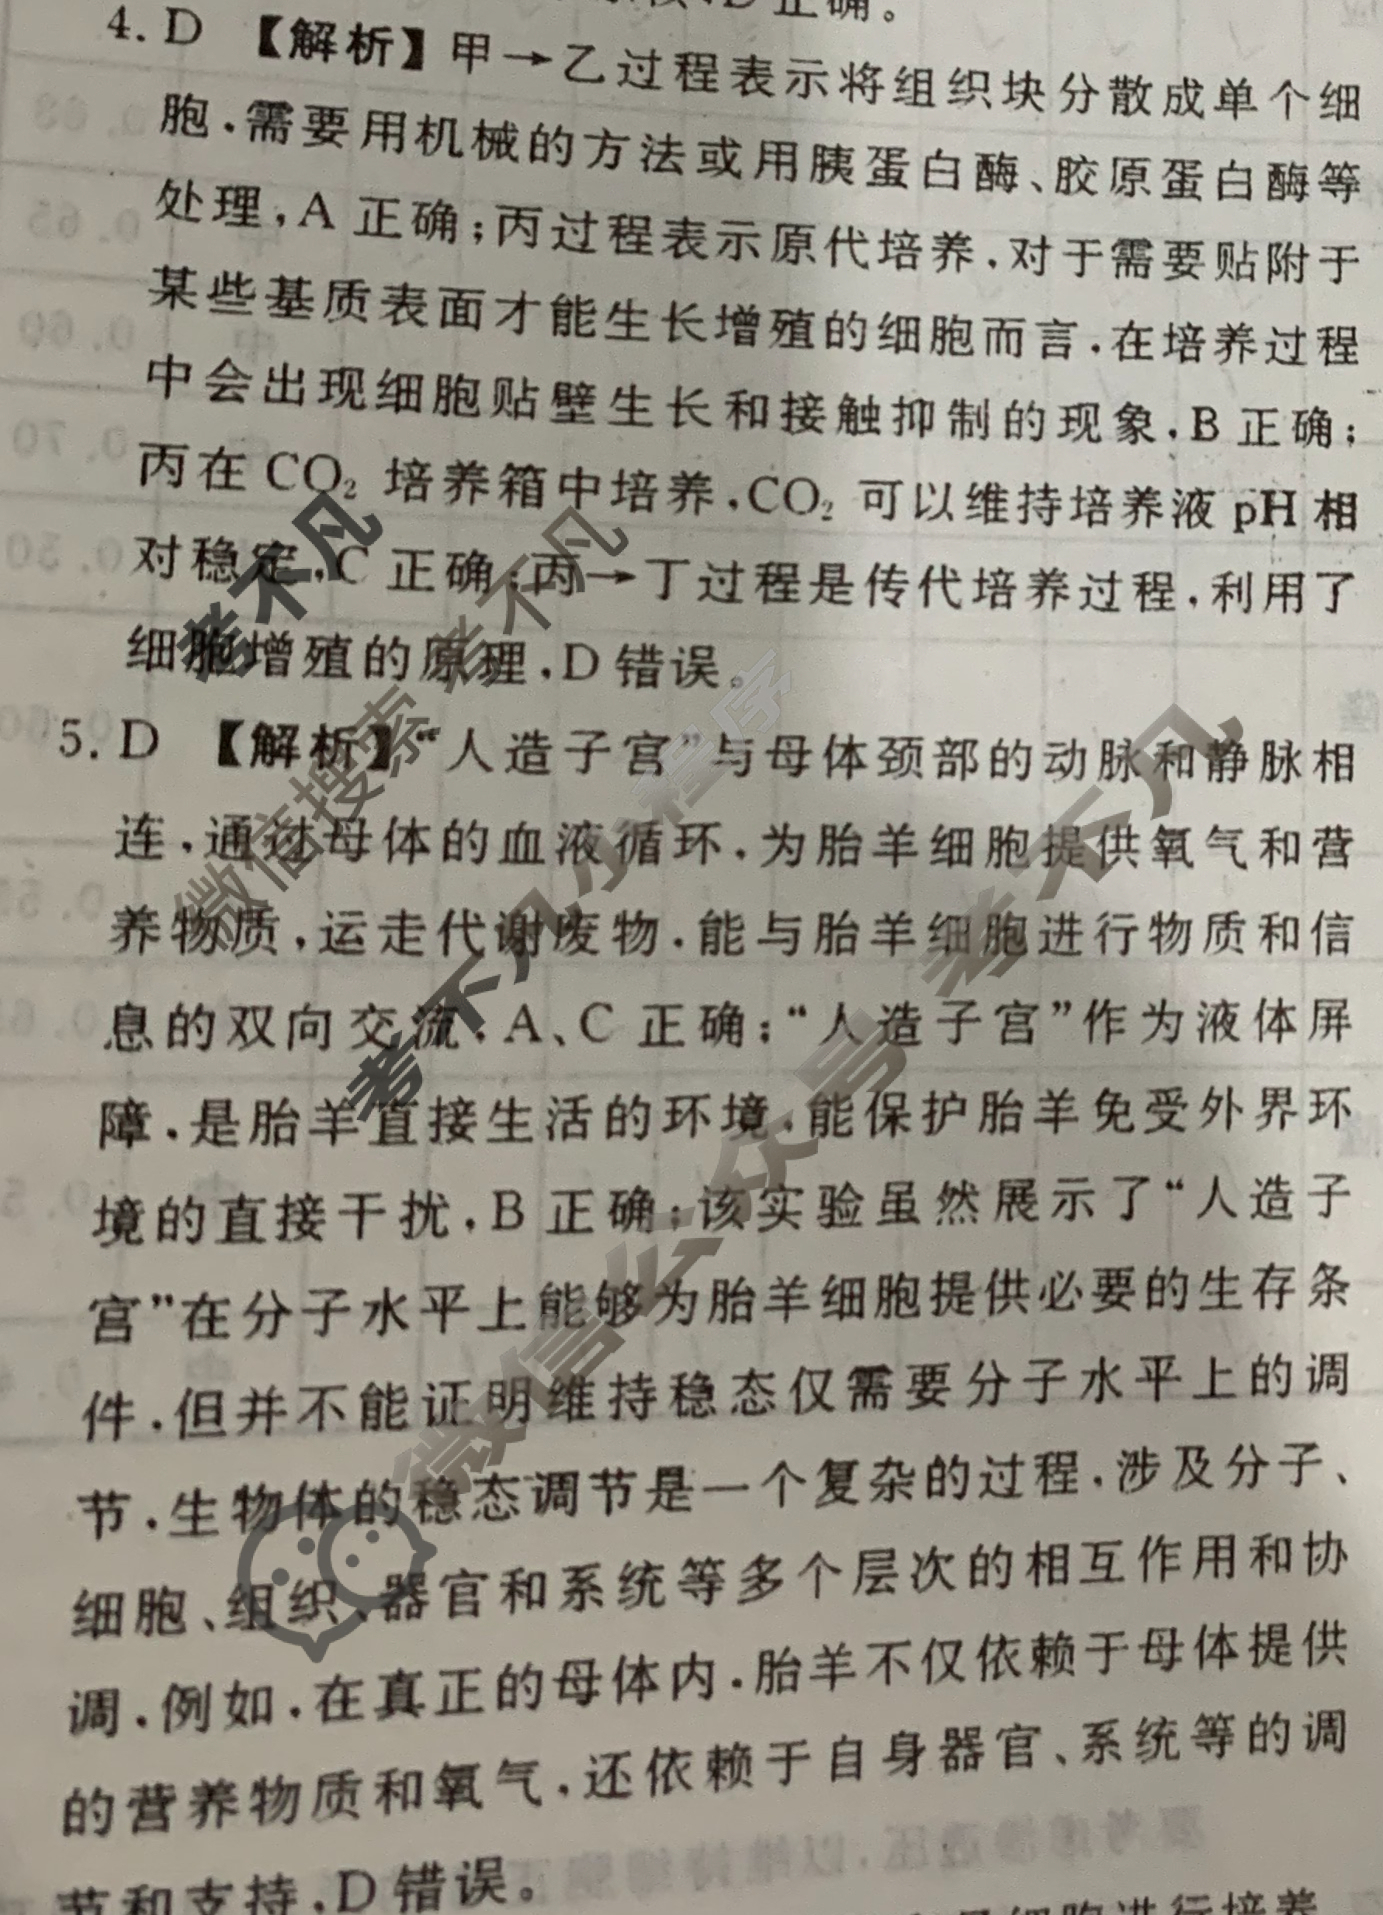 正确。
4. D 【解析】甲→乙过程表示将组织块分散成单个细
胞,需要用机械的方法或用胰蛋白酶、胶原蛋白酶等
处理,A 正确;丙过程表示原代培养,对于需要贴附于
某些基质表面才能生长增殖的细胞而言,在培养过程
中会出现细胞贴壁生长和接触抑制的现象,B 正确;
丙在 CO₂ 培养箱中培养,CO₂ 可以维持培养液 pH 相
对稳定,C 正确;丙→丁过程是传代培养过程,利用了
细胞增殖的原理,D 错误。
5. D 【解析】“人造子宫”与母体颈部的动脉和静脉相
连,通过母体的血液循环,为胎羊细胞提供氧气和营
养物质,运走代谢废物,能与胎羊细胞进行物质和信
息的双向交流,A、C 正确;“人造子宫”作为液体屏
障,是胎羊直接生活的环境,能保护胎羊免受外界环
境的直接干扰,B 正确;该实验虽然展示了“人造子
宫”在分子水平上能够为胎羊细胞提供必要的生存条
件,但并不能证明维持稳态仅需要分子水平上的调
节,生物体的稳态调节是一个复杂的过程,涉及分子、
细胞、组织、器官和系统等多个层次的相互作用和协
调,例如,在真正的母体内,胎羊不仅依赖于母体提供
的营养物质和氧气,还依赖于自身器官、系统等的调
节和支持,D 错误。
细胞进行培养
考不凡
微信搜索考不凡
考不凡小程序
微信公众号 考不凡